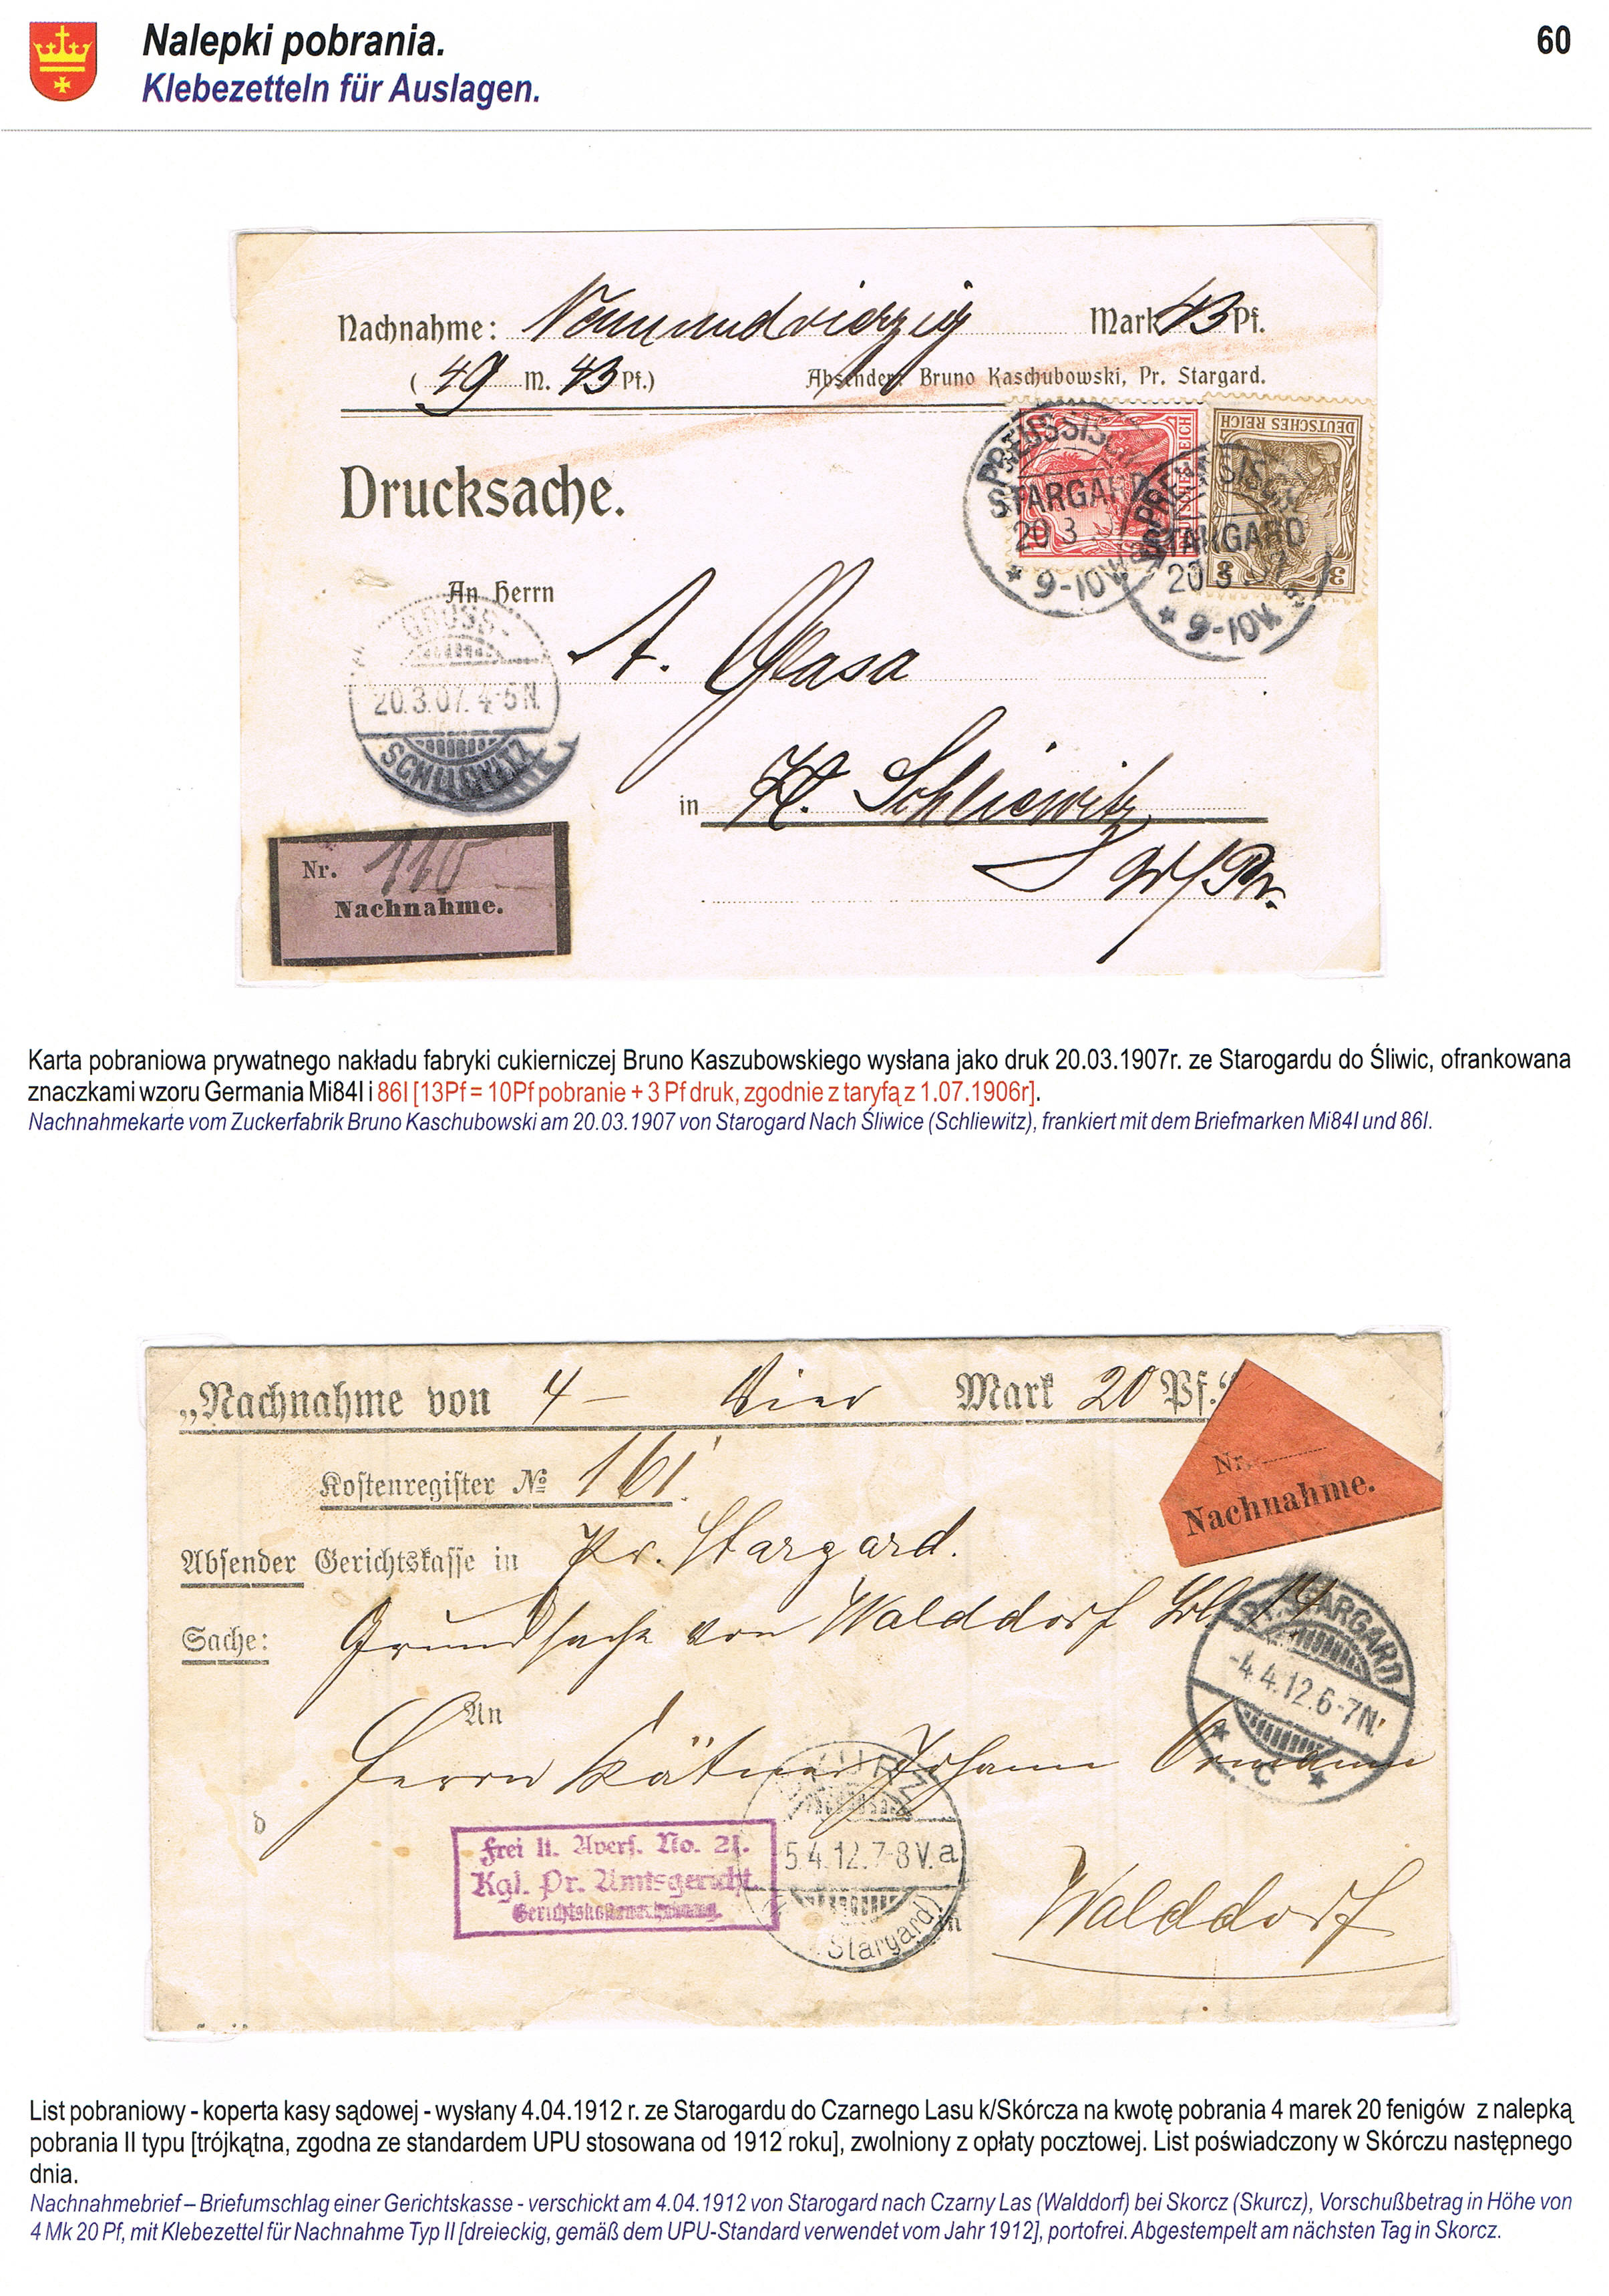 Nalepki pobrania.
60
Klebezetteln für Auslagen.
Nachnahme: Neunundvierzig Mark 43 Pf.
( 49 M. 43 Pf.) Absender: Bruno Kaschubowski, Pr. Stargard.
DEUTSCHES REICH
DEUTSCHES REICH
3 3
PREUSSISCH
STARGARD
20 3
* 9-10V
PREUSSISCH
STARGARD
20 3 07
* 9-10V
Drucksache.
An Herrn
A. Glasa
GROSS-
20.3.07. 4-5N.
SCHLIEWITZ
in Kl. Schliewitz
W/Pr.
Nr. 110
Nachnahme.
Karta pobraniowa prywatnego nakładu fabryki cukierniczej Bruno Kaszubowskiego wysłana jako druk 20.03.1907r. ze Starogardu do Śliwic, ofrankowana
znaczkami wzoru Germania Mi84I i 86I [13Pf = 10Pf pobranie + 3 Pf druk, zgodnie z taryfą z 1.07.1906r].
Nachnahmekarte vom Zuckerfabrik Bruno Kaschubowski am 20.03.1907 von Starogard Nach Śliwice (Schliewitz), frankiert mit dem Briefmarken Mi84I und 86I.
„Nachnahme von 4 — Vier Mark 20 Pf.“
Nr.
Nachnahme.
Kostenregister № 161.
Absender Gerichtskasse in Pr. Stargard.
Sache: Grundsache von Walddorf Bl 14
PR. STARGARD
-4.4.12.6-7N.
* C *
An
Herrn Kätner Johann
SKURZ
5.4.12.7-8V. a
(Stargard)
Frei lt. Avers. No. 21.
Kgl. Pr. Amtsgericht.
in Walddorf
List pobraniowy - koperta kasy sądowej - wysłany 4.04.1912 r. ze Starogardu do Czarnego Lasu k/Skórcza na kwotę pobrania 4 marek 20 fenigów z nalepką
pobrania II typu [trójkątna, zgodna ze standardem UPU stosowana od 1912 roku], zwolniony z opłaty pocztowej. List poświadczony w Skórczu następnego
dnia.
Nachnahmebrief – Briefumschlag einer Gerichtskasse - verschickt am 4.04.1912 von Starogard nach Czarny Las (Walddorf) bei Skorcz (Skurcz), Vorschußbetrag in Höhe von
4 Mk 20 Pf, mit Klebezettel für Nachnahme Typ II [dreieckig, gemäß dem UPU-Standard verwendet vom Jahr 1912], portofrei. Abgestempelt am nächsten Tag in Skorcz.